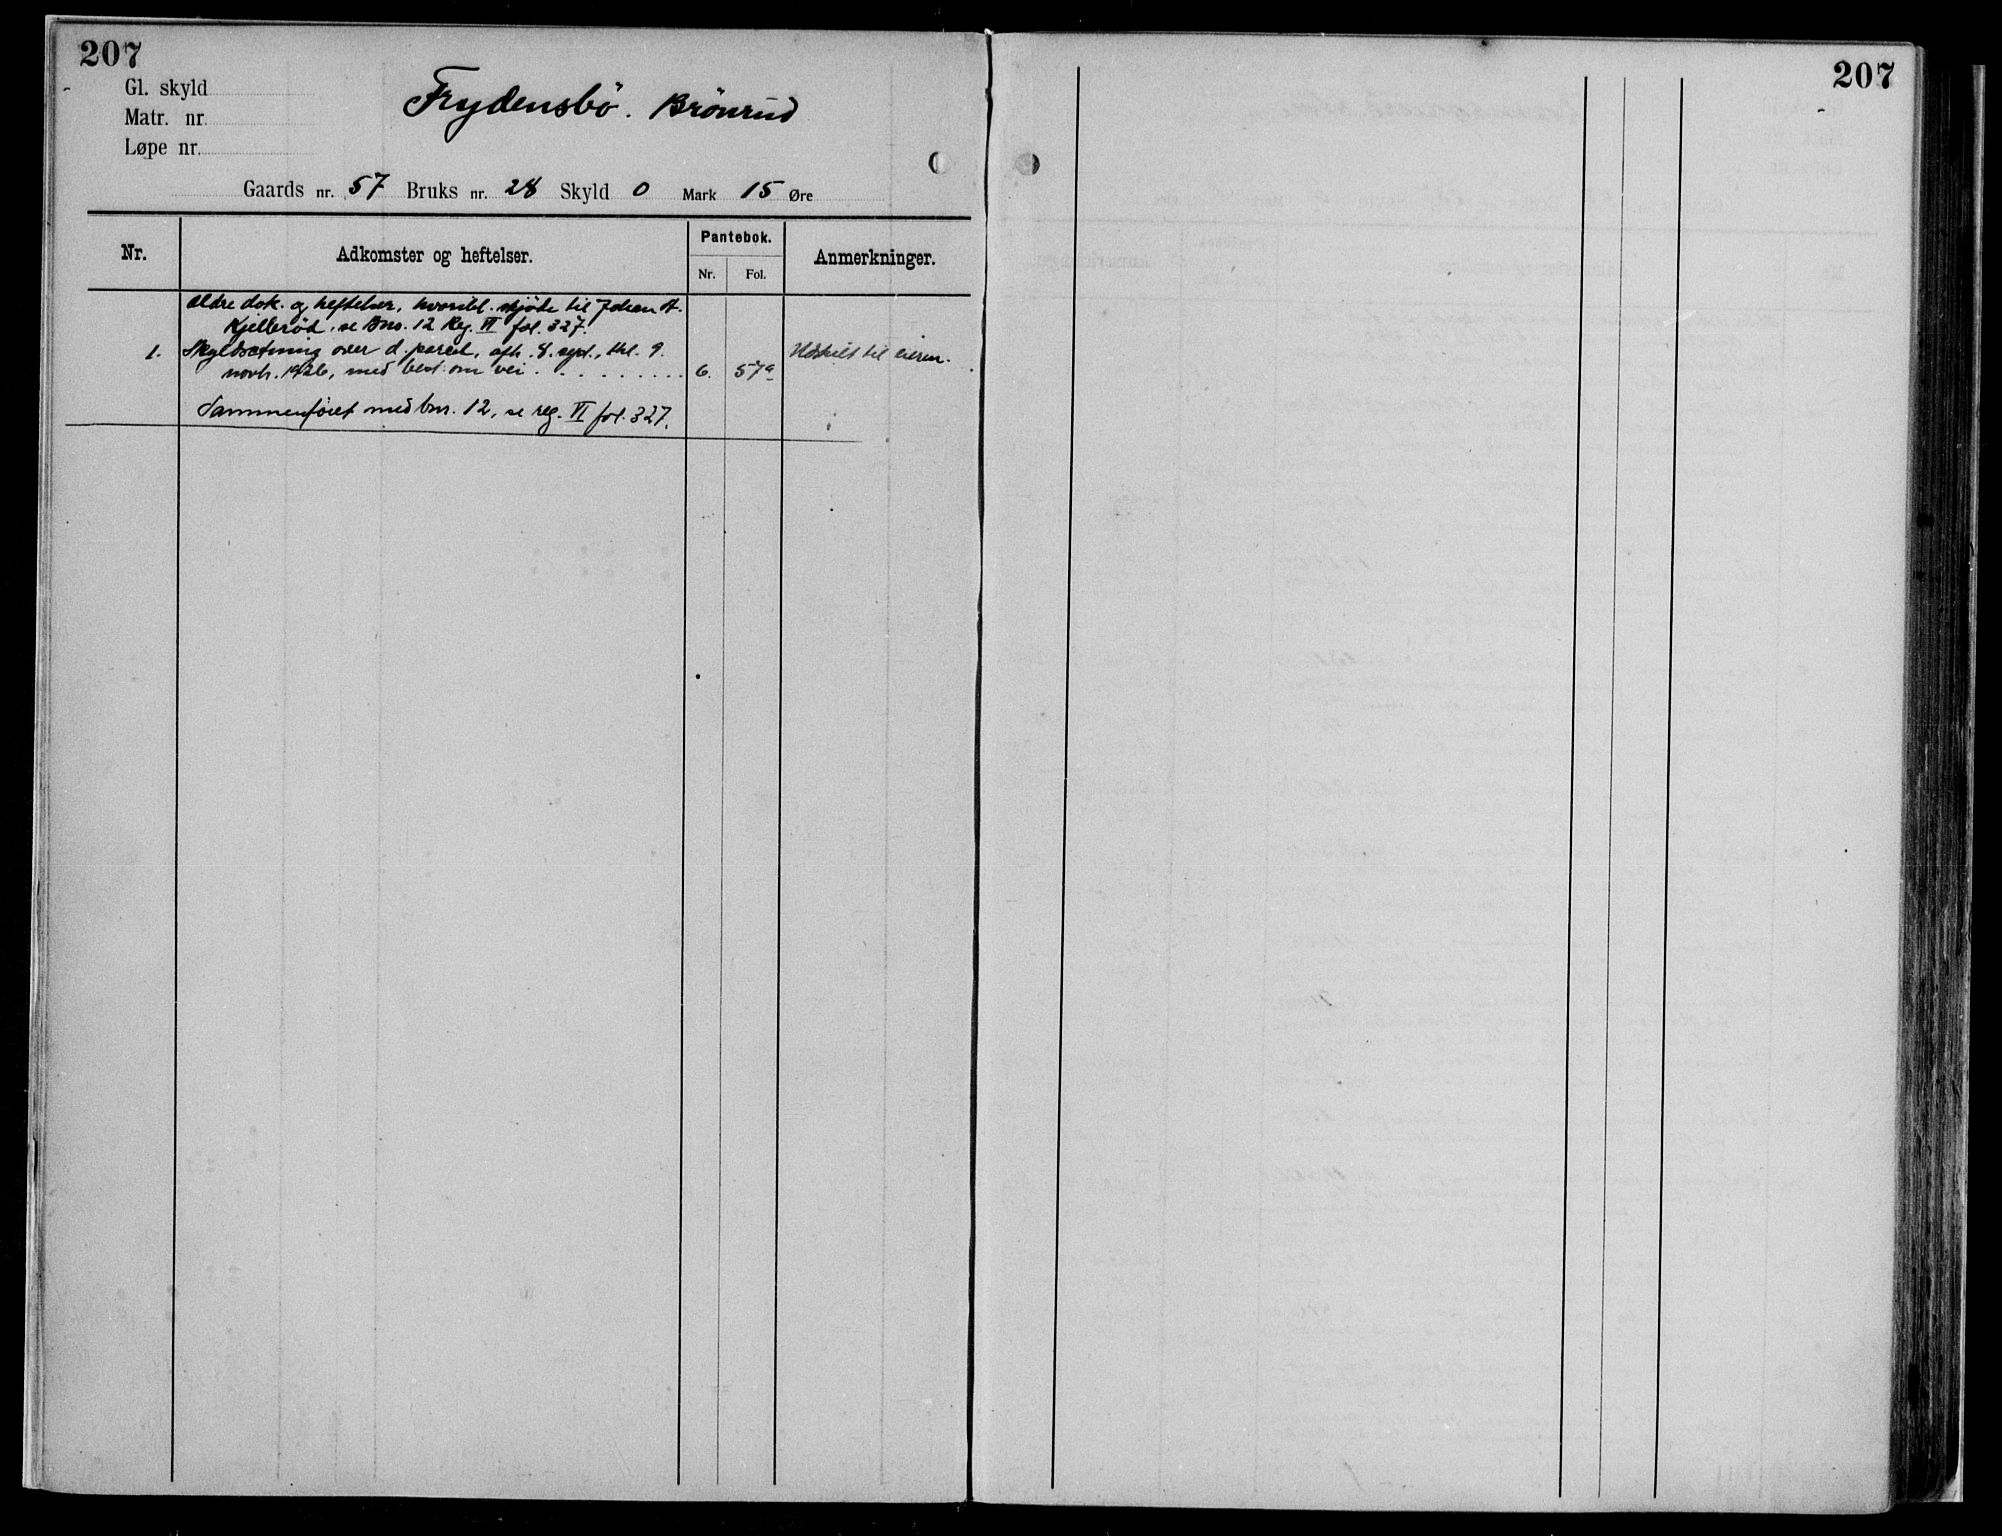 207
Gl. skyld
Matr. nr.
Løpe nr.
Frydensbö. Brönrud
Gaards nr. 57 Bruks nr. 28 Skyld 0 Mark 15 Øre
Nr. Adkomster og heftelser. Pantebok. Anmerkninger.
Nr. Fol.
Ældre dok. og heftelser, hvoribl. skjöte til Johan A.
Kjelleröd, se Bno. 12 Reg. VI fol. 327.
1. Skyldsætning over d. parcel, afh. 8. sept., thl. 9.
novb. 1926, med best. om vei . . . . . . . . . 6. 57a Utskilt til eieren.
Sammenföiet med bnr. 12, se reg. VI fol. 327.
207